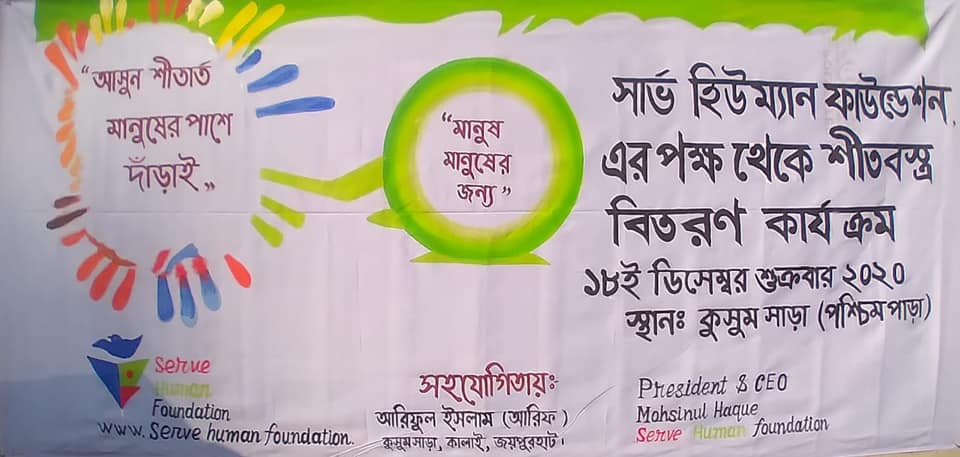 “আসুন শীতার্ত
মানুষের পাশে
দাঁড়াই„
“মানুষ
মানুষের
জন্য”
সার্ভ হিউম্যান ফাউন্ডেশন,
এর পক্ষ থেকে শীতবস্ত্র
বিতরণ কার্যক্রম
১৮ই ডিসেম্বর শুক্রবার ২০২০
স্থানঃ কুসুম সাড়া (পশ্চিম পাড়া)
Serve
Human
Foundation
www. Serve human foundation.
সহযোগিতায়ঃ-
আরিফুল ইসলাম (আরিফ)
কুসুমসাড়া, কালাই, জয়পুরহাট।
President & CEO
Mohsinul Haque
Serve Human foundation